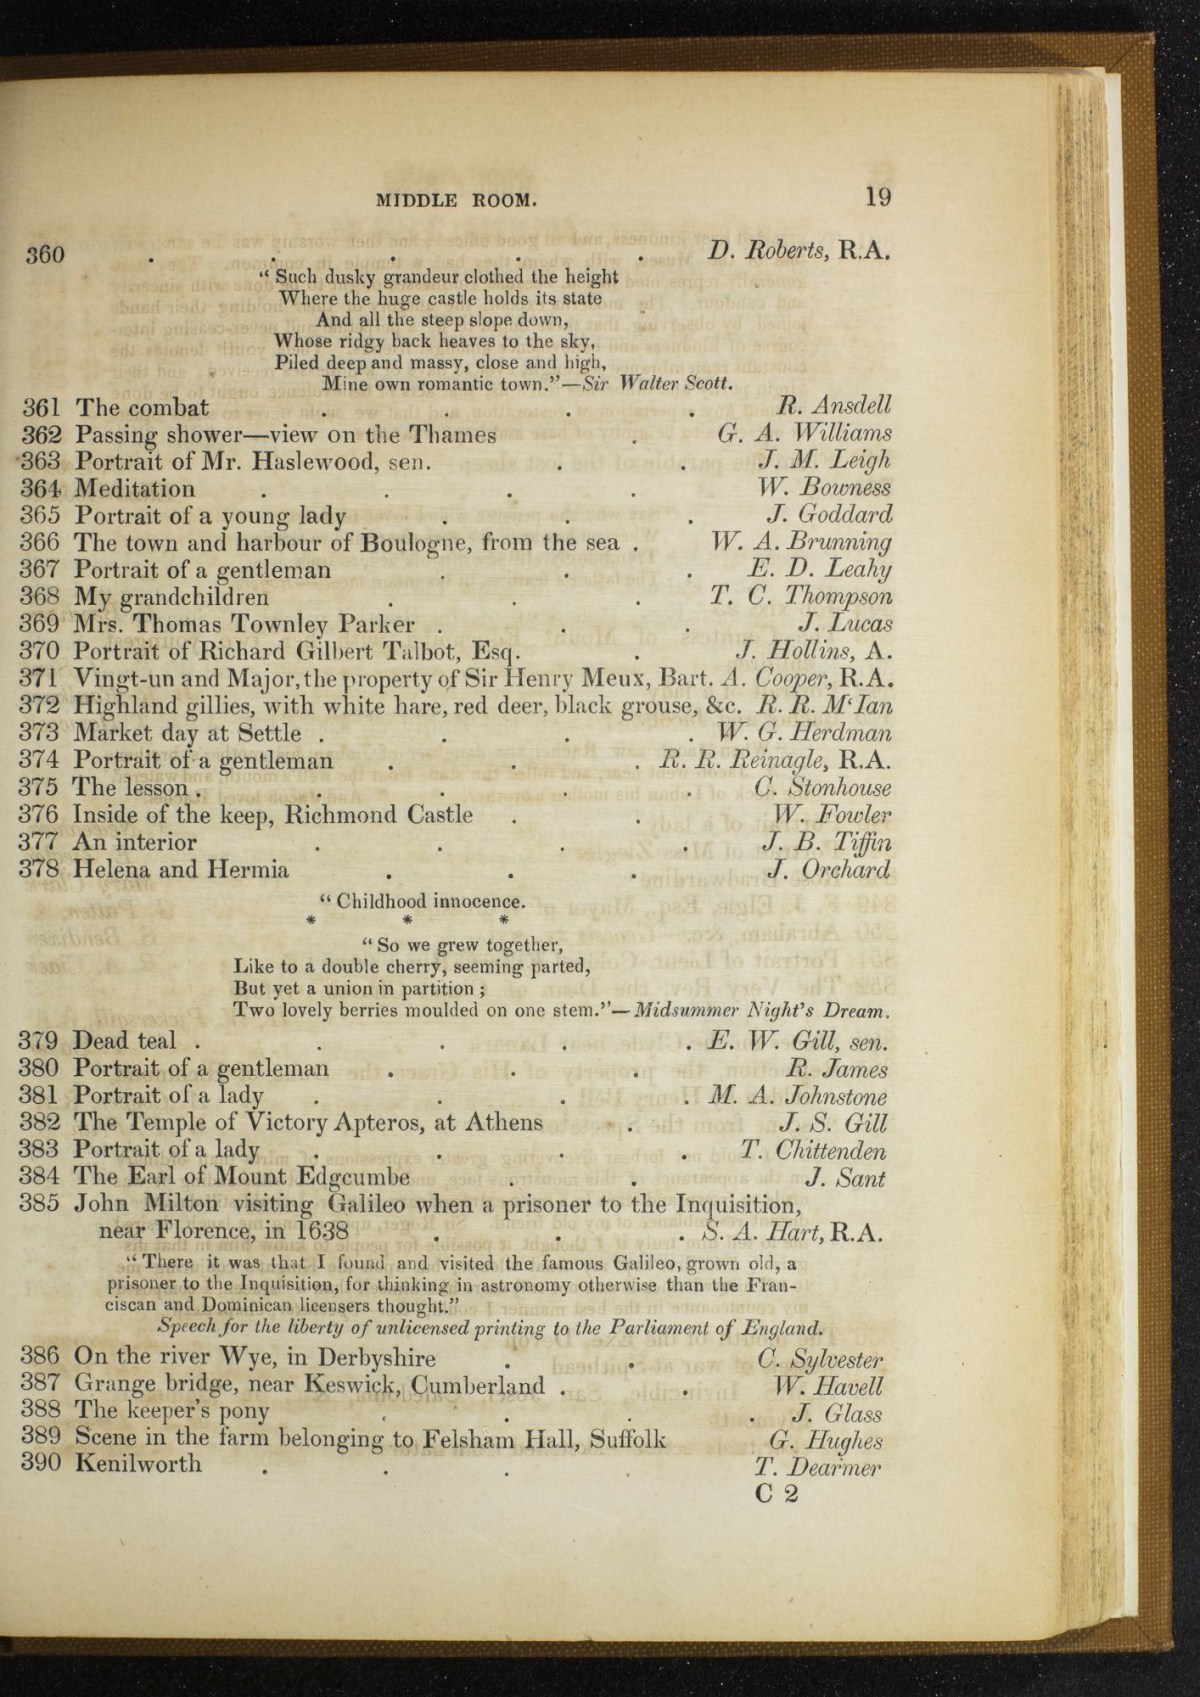 MIDDLE ROOM. 19
360 . . . . . D. Roberts, R.A.
“ Such dusky grandeur clothed the height
Where the huge castle holds its state
And all the steep slope down,
Whose ridgy back heaves to the sky,
Piled deep and massy, close and high,
Mine own romantic town.”—Sir Walter Scott.
361 The combat . . . . R. Ansdell
362 Passing shower—view on the Thames . G. A. Williams
363 Portrait of Mr. Haslewood, sen. . . J. M. Leigh
364 Meditation . . . . W. Bowness
365 Portrait of a young lady . . . J. Goddard
366 The town and harbour of Boulogne, from the sea . W. A. Brunning
367 Portrait of a gentleman . . . E. D. Leahy
368 My grandchildren . . . T. C. Thompson
369 Mrs. Thomas Townley Parker . . . J. Lucas
370 Portrait of Richard Gilbert Talbot, Esq. . J. Hollins, A.
371 Vingt-un and Major, the property of Sir Henry Meux, Bart. A. Cooper, R.A.
372 Highland gillies, with white hare, red deer, black grouse, &c. R. R. M‘Ian
373 Market day at Settle . . . . W. G. Herdman
374 Portrait of a gentleman . . . R. R. Reinagle, R.A.
375 The lesson . . . . . C. Stonhouse
376 Inside of the keep, Richmond Castle . . W. Fowler
377 An interior . . . . J. B. Tiffin
378 Helena and Hermia . . . J. Orchard
“ Childhood innocence.
* * *
“ So we grew together,
Like to a double cherry, seeming parted,
But yet a union in partition ;
Two lovely berries moulded on one stem.”—Midsummer Night's Dream.
379 Dead teal . . . . . E. W. Gill, sen.
380 Portrait of a gentleman . . . R. James
381 Portrait of a lady . . . . M. A. Johnstone
382 The Temple of Victory Apteros, at Athens . J. S. Gill
383 Portrait of a lady . . . . T. Chittenden
384 The Earl of Mount Edgcumbe . . J. Sant
385 John Milton visiting Galileo when a prisoner to the Inquisition,
near Florence, in 1638 . . . S. A. Hart, R.A.
“ There it was that I found and visited the famous Galileo, grown old, a
prisoner to the Inquisition, for thinking in astronomy otherwise than the Fran-
ciscan and Dominican licensers thought.”
Speech for the liberty of unlicensed printing to the Parliament of England.
386 On the river Wye, in Derbyshire . . C. Sylvester
387 Grange bridge, near Keswick, Cumberland . . W. Havell
388 The keeper's pony . . . . J. Glass
389 Scene in the farm belonging to Felsham Hall, Suffolk G. Hughes
390 Kenilworth . . . . T. Dearmer
C 2